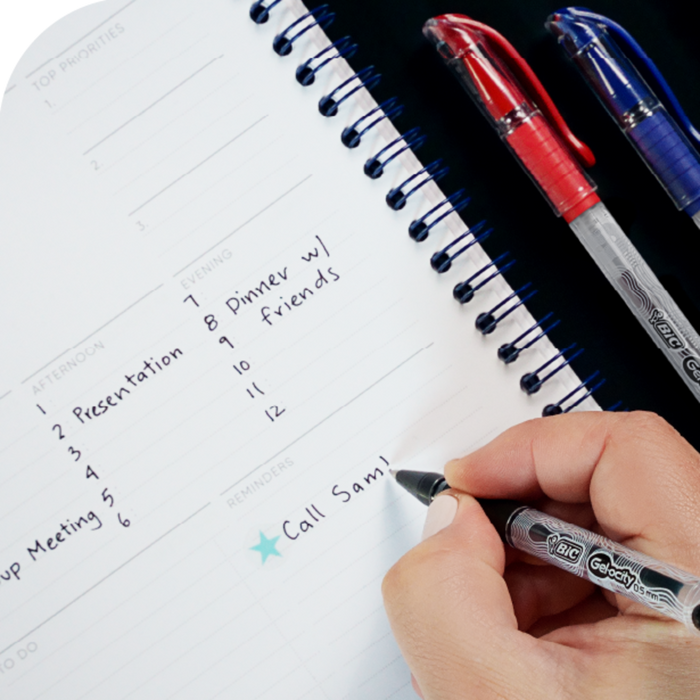 TOP PRIORITIES
1.
2.
3.
EVENING
7
8 Dinner w/
friends
9
10
11
12
AFTERNOON
1
2 Presentation
3
4
5
6
up Meeting
REMINDERS
Call Sam!
TO DO
BIC
BIC Gelocity 0.5 mm